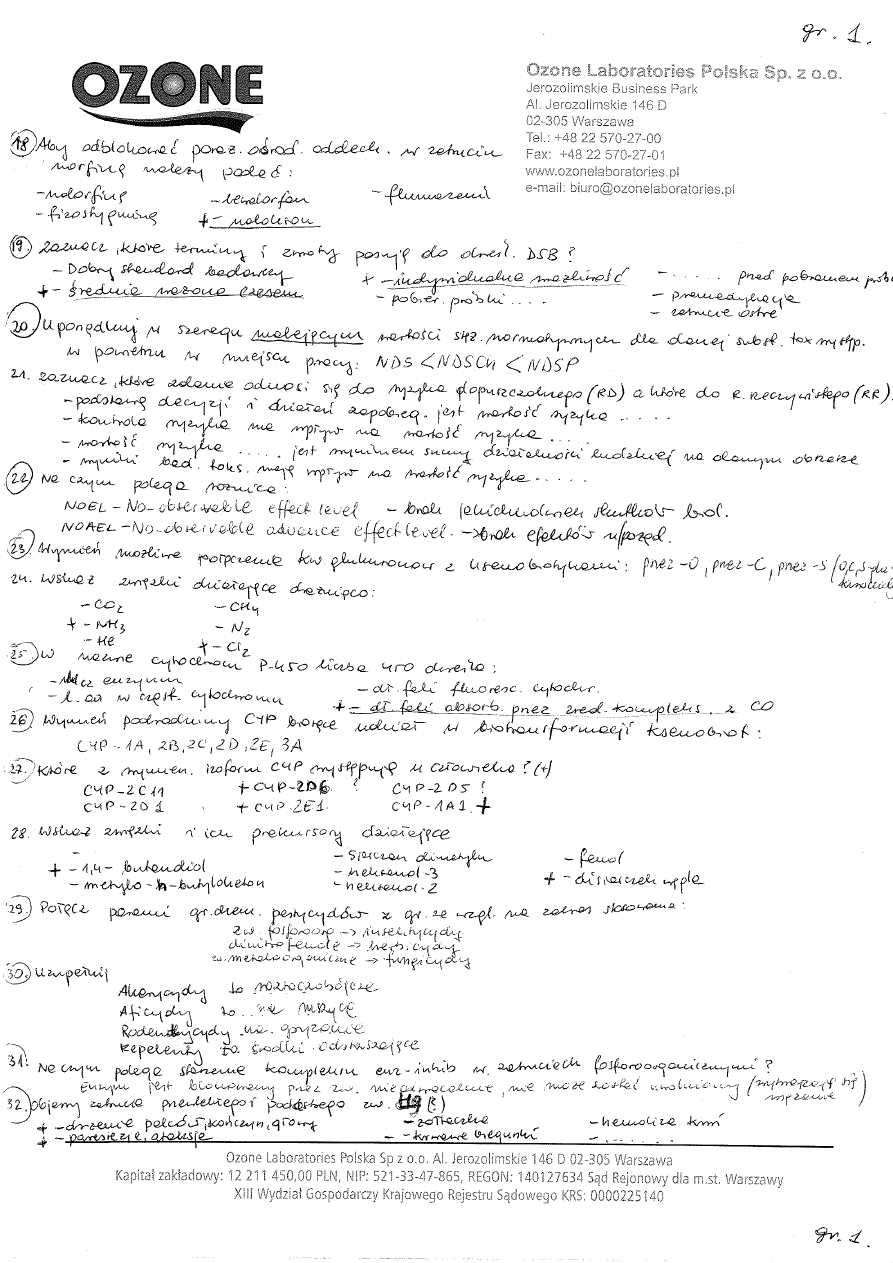 gr. 1.
OZONE
Ozone Laboratories Polska Sp. z o.o.
Jerozolimskie Business Park
Al. Jerozolimskie 146 D
02-305 Warszawa
Tel.: +48 22 570-27-00
Fax: +48 22 570-27-01
www.ozonelaboratories.pl
e-mail: biuro@ozonelaboratories.pl
18) Aby odblokować poraż. ośrod. oddech. w zatruciu
morfiną należy podać:
- nalorfinę - lewalorfan - flumazenil
- fizostygminę + - nalokson
19) Zaznacz, które terminy i zwroty pasują do określ. DSB?
- Dobry standard badawczy + - indywidualna wrażliwość - ..... przed pobraniem prób
+ - średnia ważona czasem - pobier. próbki .... - premedykacja
- zatrucie ostre
20) Uporządkuj w szeregu malejącym wartości stęż. normatywnych dla danej subst. tox występ.
w powietrzu w miejscu pracy: NDS < NDSCh < NDSP
21. Zaznacz, które zdanie odnosi się do ryzyka dopuszczalnego (RD) a które do R. rzeczywistego (RR).
- podstawą decyzji i działań zapobieg. jest wartość ryzyka .....
- kontrola ryzyka nie wpływ na wartość ryzyka .....
- wartość ryzyka ..... jest wynikiem sumy działalności ludzkiej na danym obszarze
- wyniki bad. toks. mają wpływ na wartość ryzyka .....
22) Na czym polega różnica:
NOEL - No-observable effect level - brak jakichkolwiek skutków biol.
NOAEL - No-observable advance effect level -> brak efektów uposzkod.
23) Wymień możliwe połączenia kw glukuronow z ksenobiotykami: przez -O, przez -C, przez -S
24. Wskaż związki działające drażniąco:
- CO2 - CH4
+ - NH3 - N2
- He + - Cl2
25) W nazwie cytochrom P-450 liczba 450 określa:
- m.cz enzymu - dł. fali fluoresc. cytochr.
- l. aa w cząst. cytochromu + - dł. fali absorb. przez zred. kompleks z CO
26) Wymień podrodziny CYP biorące udział w biotransformacji ksenobiot:
CYP - 1A, 2B, 2C, 2D, 2E, 3A
27) Które z wymien. izoform CYP występują u człowieka? (+)
CYP-2C11 + CYP-2D6 ? CYP-2D5 ?
CYP-2D1 + CYP-2E1. CYP-1A1 +
28. Wskaż związki i ich prekursory działające
-
+ - 1,4-butandiol - siarczan dimetylu - fenol
- metylo-n-butyloketon - heksanol-3 + - disiarczek węgla
- heksanol-2
29) Połącz parami gr. chem. pestycydów z gr. ze wzgl. na zakres stosowania:
zw. fosforoorg -> insektycydy
dinitrofenole -> herbicydy
zw. metaloorganiczne -> fungicydy
30) Uzupełnij
Akarycydy to roztoczobójcze
Aficydy to .. na mszyce
Rodentycydy na gryzonie
Repelenty to środki odstraszające
31. Na czym polega starzenie kompleksu enz-inhib w zatruciach fosforoorganicznymi?
Enzym jest blokowany przez zw. nieodwracalnie, nie może zostać uwolniony
32) Objawy zatrucia przewlekłego i podostrego zw. Hg (?)
+ - drżenie palców, kończyn, głowy - żółtaczka - hemoliza krwi
+ - parestezje, ataksje - - krwawe biegunki - ......
Ozone Laboratories Polska Sp z o.o. Al. Jerozolimskie 146 D 02-305 Warszawa
Kapitał zakładowy: 12 211 450,00 PLN, NIP: 521-33-47-865, REGON: 140127634 Sąd Rejonowy dla m.st. Warszawy
XIII Wydział Gospodarczy Krajowego Rejestru Sądowego KRS: 0000225140
gr. 1.